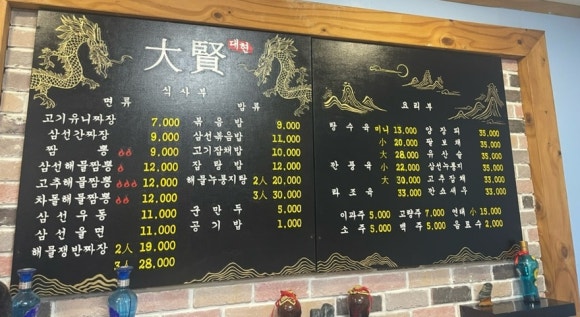 大賢 대현
식사부
면류
고기유니짜장 7.000
삼선간짜장 9.000
짬뽕 9.000
삼선해물짬뽕 12.000
고추해물짬뽕 12.000
차돌해물짬뽕 12.000
삼선우동 11.000
삼선울면 11.000
해물쟁반짜장 2人 19.000
3人 28.000
밥류
볶음밥 9.000
삼선볶음밥 11.000
고기잡채밥 10.000
잡탕밥 12.000
해물누룽지탕 2人 20,000
3人 30,000
군만두 5,000
공기밥 1,000
요리부
탕수육 미니 13,000
小 20,000
大 28,000
깐풍육 小 22,000
大 30,000
라조육 33,000
양장피 33,000
팔보채 33,000
유산슬 33,000
삼선누룽지 33,000
고추잡채 33,000
깐쇼새우 33,000
이과주 5,000 고량주 7,000 연태 小 15,000
소주 5,000 맥주 5,000 음료수 2,000